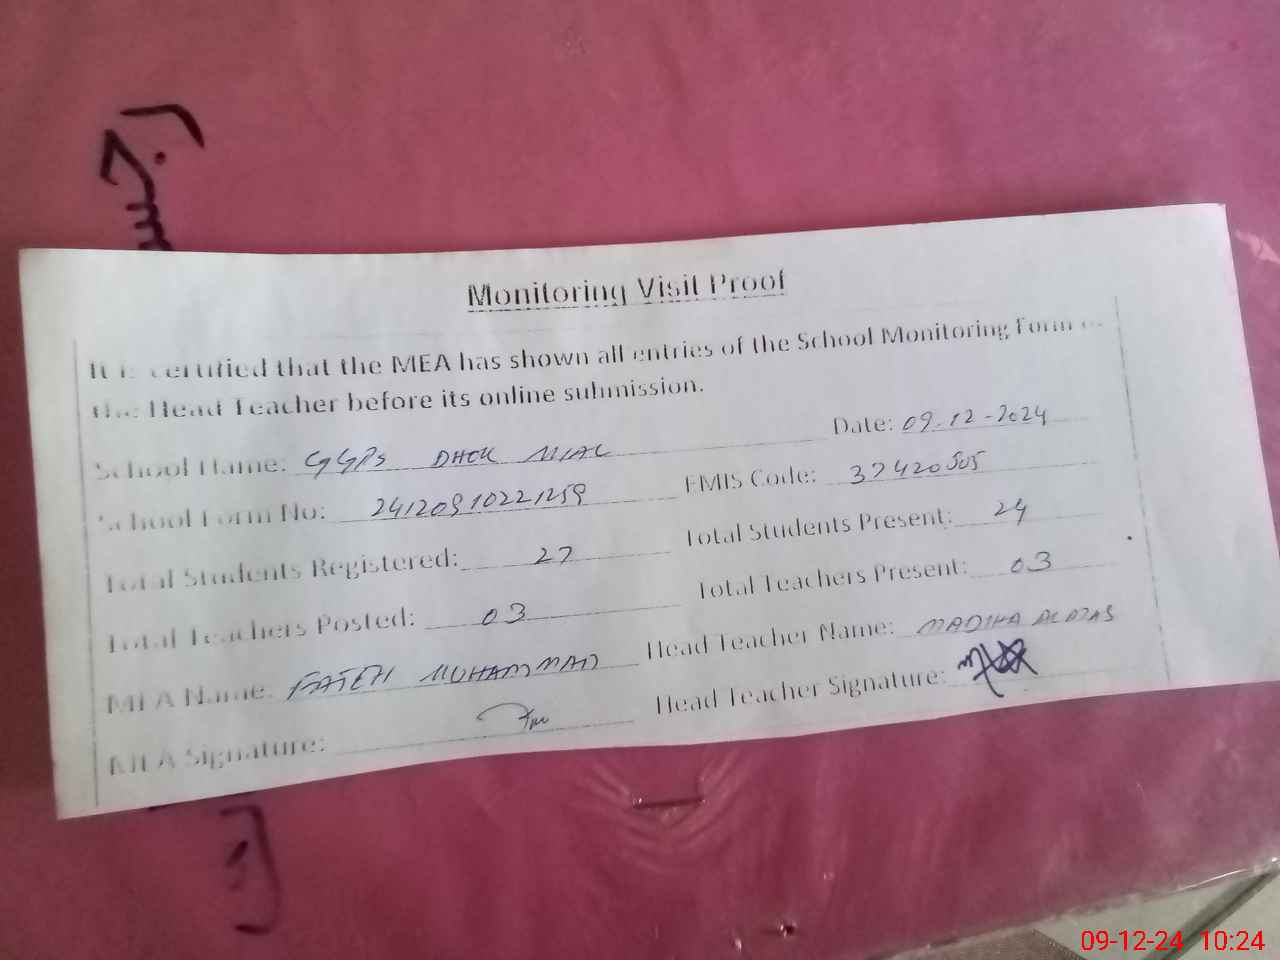 Monitoring Visit Proof
It is certified that the MEA has shown all entries of the School Monitoring Form
the Head Teacher before its online submission.
School Name: GGPS DHOK MIAL Date: 09-12-2024
School Form No: 24120910221259 EMIS Code: 37420505
Total Students Registered: 27 Total Students Present: 24
Total Teachers Posted: 03 Total Teachers Present: 03
MEA Name: FATEH MUHAMMAD Head Teacher Name: MADIHA
MEA Signature: Head Teacher Signature:
09-12-24 10:24